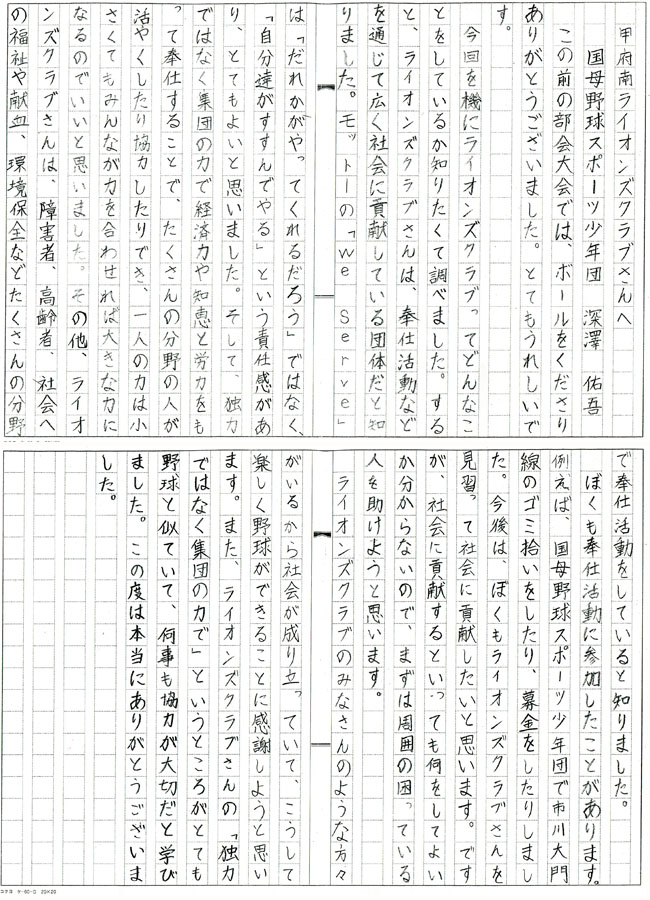 甲府南ライオンズクラブさんへ
国母野球スポーツ少年団　深澤　佑吾
この前の部会大会では、ボールをくださり
ありがとうございました。とてもうれしいで
す。
今回を機にライオンズクラブってどんなこ
とをしているか知りたくて調べました。する
と、ライオンズクラブさんは、奉仕活動など
を通じて広く社会に貢献している団体だと知
りました。モットーの「We Serve」
は「だれかがやってくれるだろう」ではなく、
「自分達がすすんでやる」という責任感があ
り、とてもよいと思いました。そして、独力
ではなく集団の力で経済力や知恵と労力をも
って奉仕することで、たくさんの分野の人が
活やくしたり協力したりでき、一人の力は小
さくてもみんなが力を合わせれば大きな力に
なるのでいいと思いました。その他、ライオ
ンズクラブさんは、障害者、高齢者、社会へ
の福祉や献血、環境保全などたくさんの分野
で奉仕活動をしていると知りました。
ぼくも奉仕活動に参加したことがあります。
例えば、国母野球スポーツ少年団で市川大門
線のゴミ拾いをしたり、募金をしたりしまし
た。今後は、ぼくもライオンズクラブさんを
見習って社会に貢献したいと思います。です
が、社会に貢献するといっても何をしてよい
か分からないので、まずは周囲の困っている
人を助けようと思います。
ライオンズクラブのみなさんのような方々
がいるから社会が成り立っていて、こうして
楽しく野球ができることに感謝しようと思い
ます。また、ライオンズクラブさんの「独力
ではなく集団の力で」というところがとても
野球と似ていて、何事も協力が大切だと学び
ました。この度は本当にありがとうございま
した。
コクヨ ケ-60-D 20×20